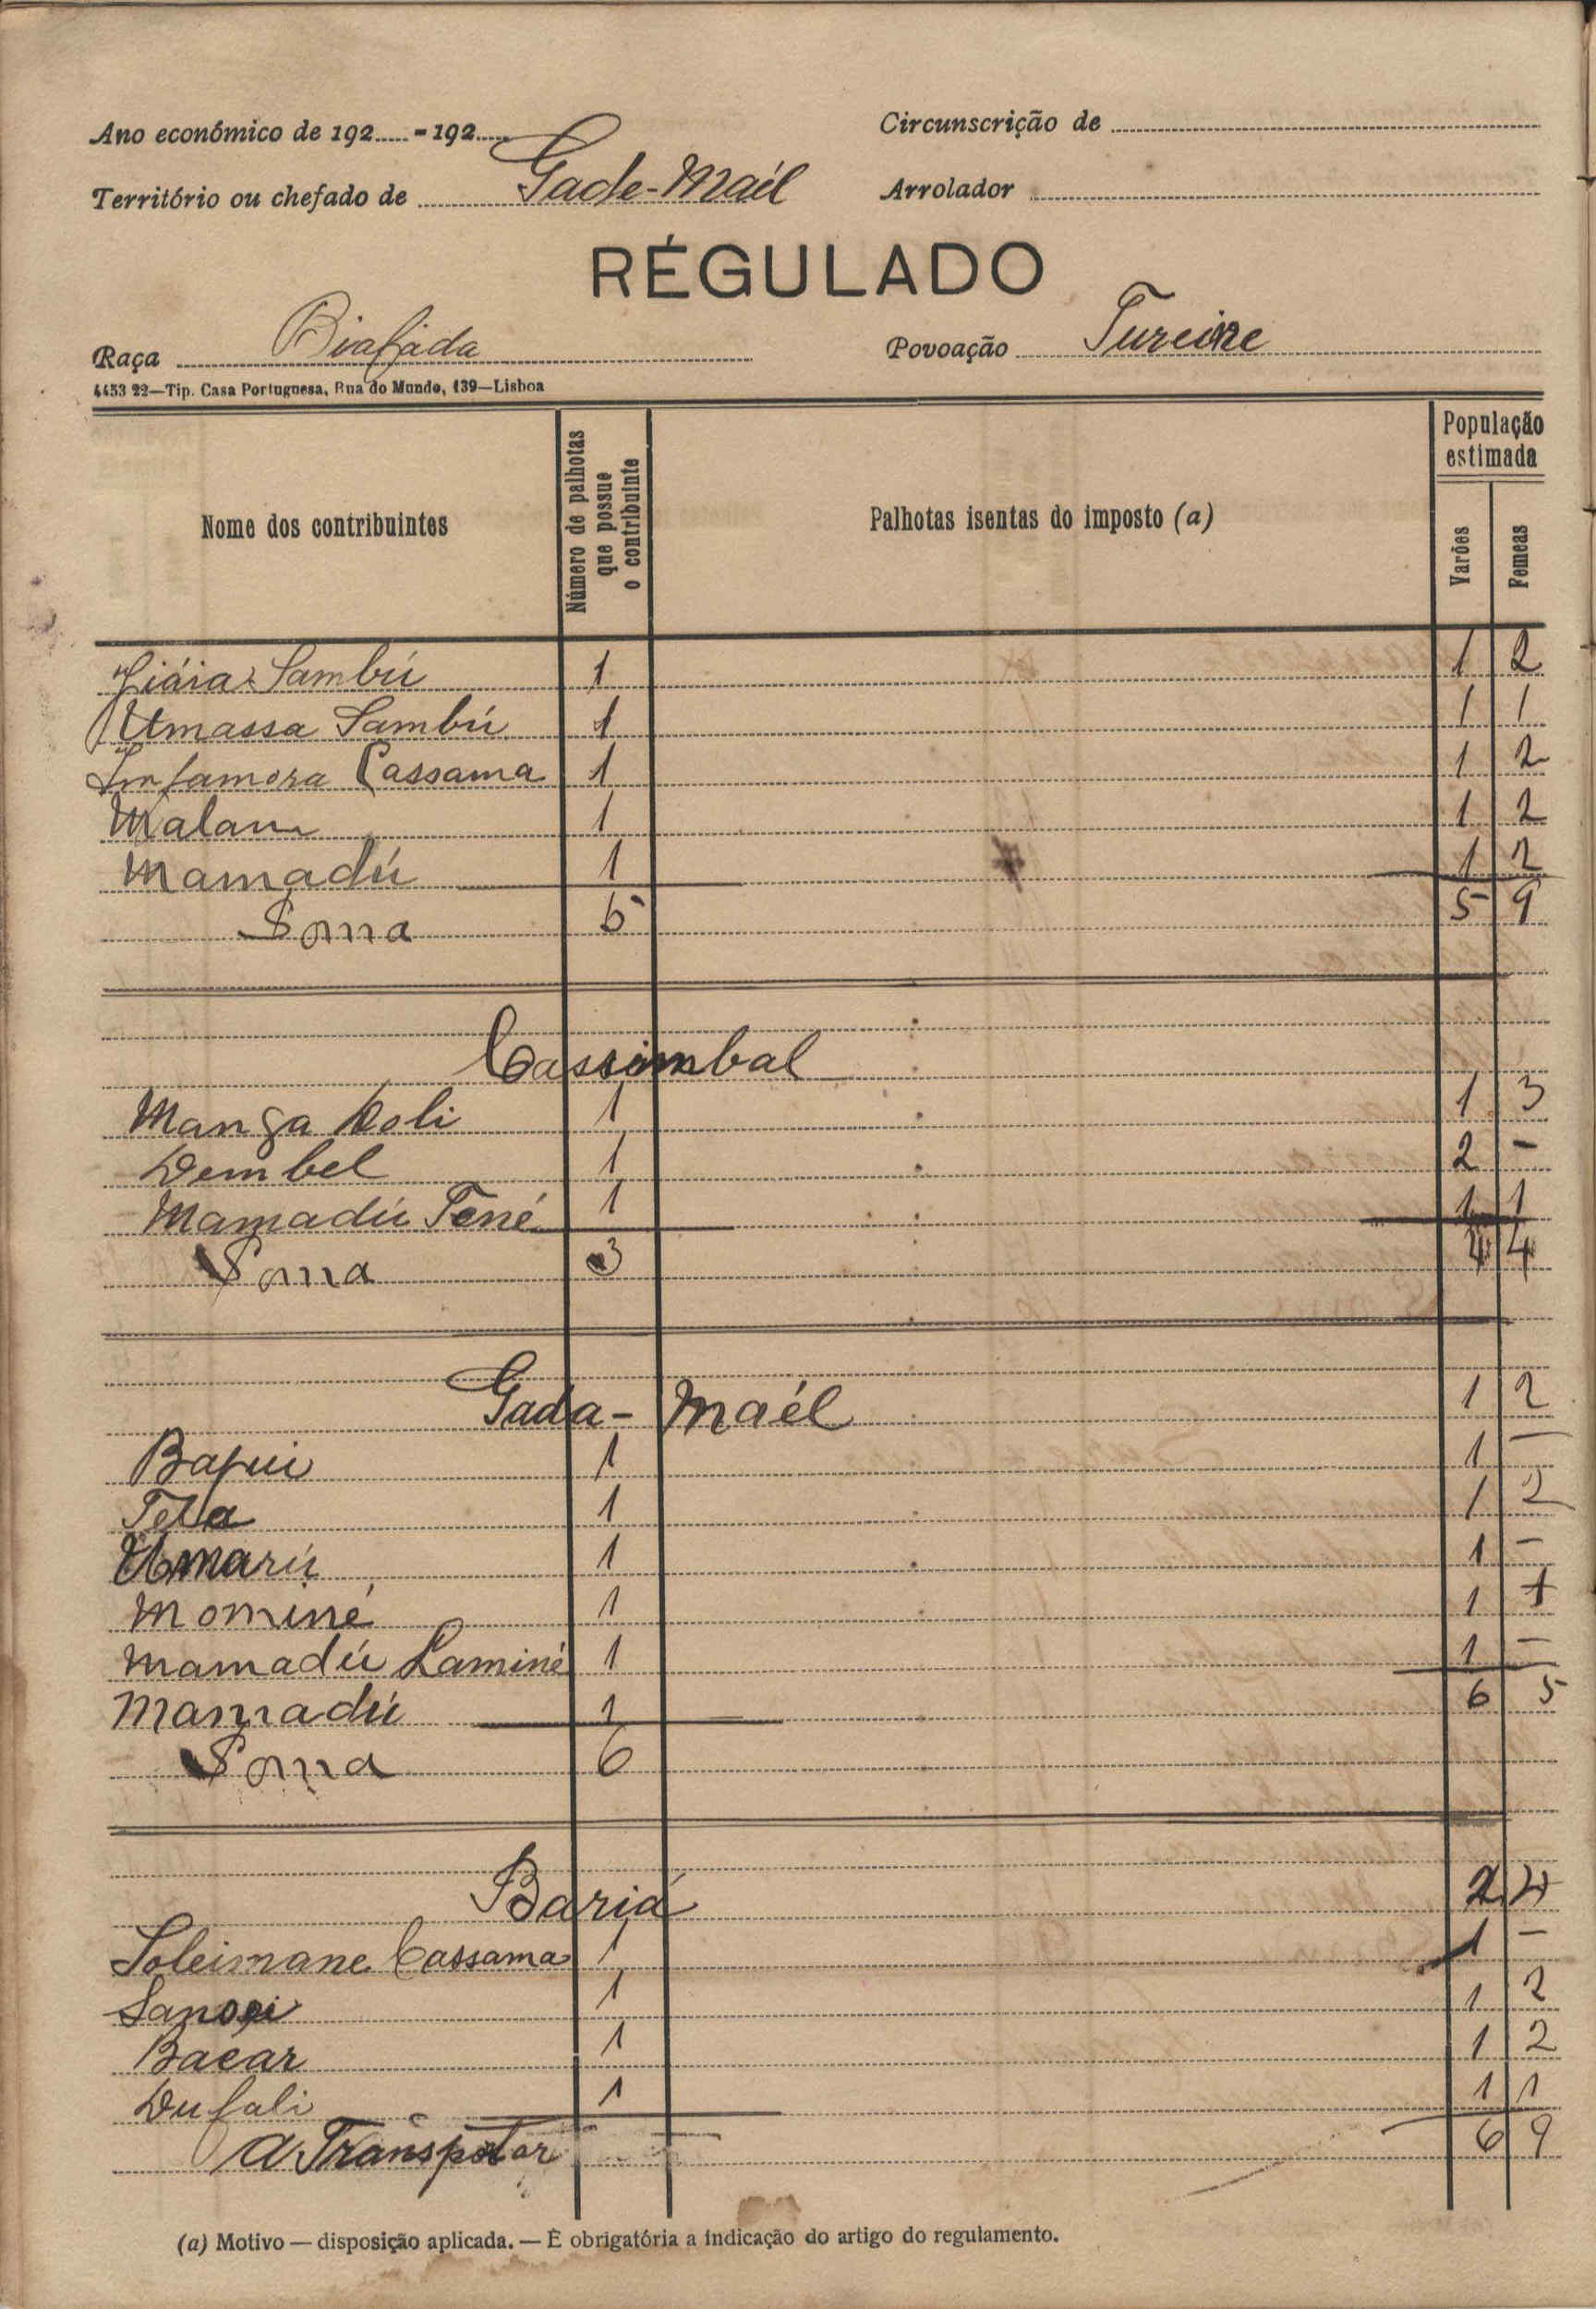 Ano económico de 192..... - 192.....
Circunscrição de
Território ou chefado de Gade-Maél
Arrolador
RÉGULADO
Raça Biafada
Povoação Tureine
4453 22—Tip. Casa Portuguesa, Rua do Mundo, 139—Lisboa
Nome dos contribuintes
Número de palhotas que possue o contribuinte
Palhotas isentas do imposto (a)
População estimada
Varões
Femeas
Jiáia Sambú 1 1 2
Umassa Sambú 1 1 1
Infamora Cassama 1 1 2
Malam 1 1 2
Mamadú 1 1 2
Soma 5 5 9
Cassimbal
Manga Koli 1 1 3
Dembel 1 2 -
Mamadú Tené 1 1 1
Soma 3 4 4
Gada-Maél 1 2
1 1 -
1 1 2
Umarú 1 1 -
Mominé 1 1 1
Mamadú Laminé 1 1 -
Mamadú 1 6 5
Soma 6
Bariá 2 4
Soleimane Cassama 1 1 -
1 1 2
Bacar 1 1 2
Dufali 1 1 1
A Transpotar 6 9
(a) Motivo — disposição aplicada. — É obrigatória a indicação do artigo do regulamento.